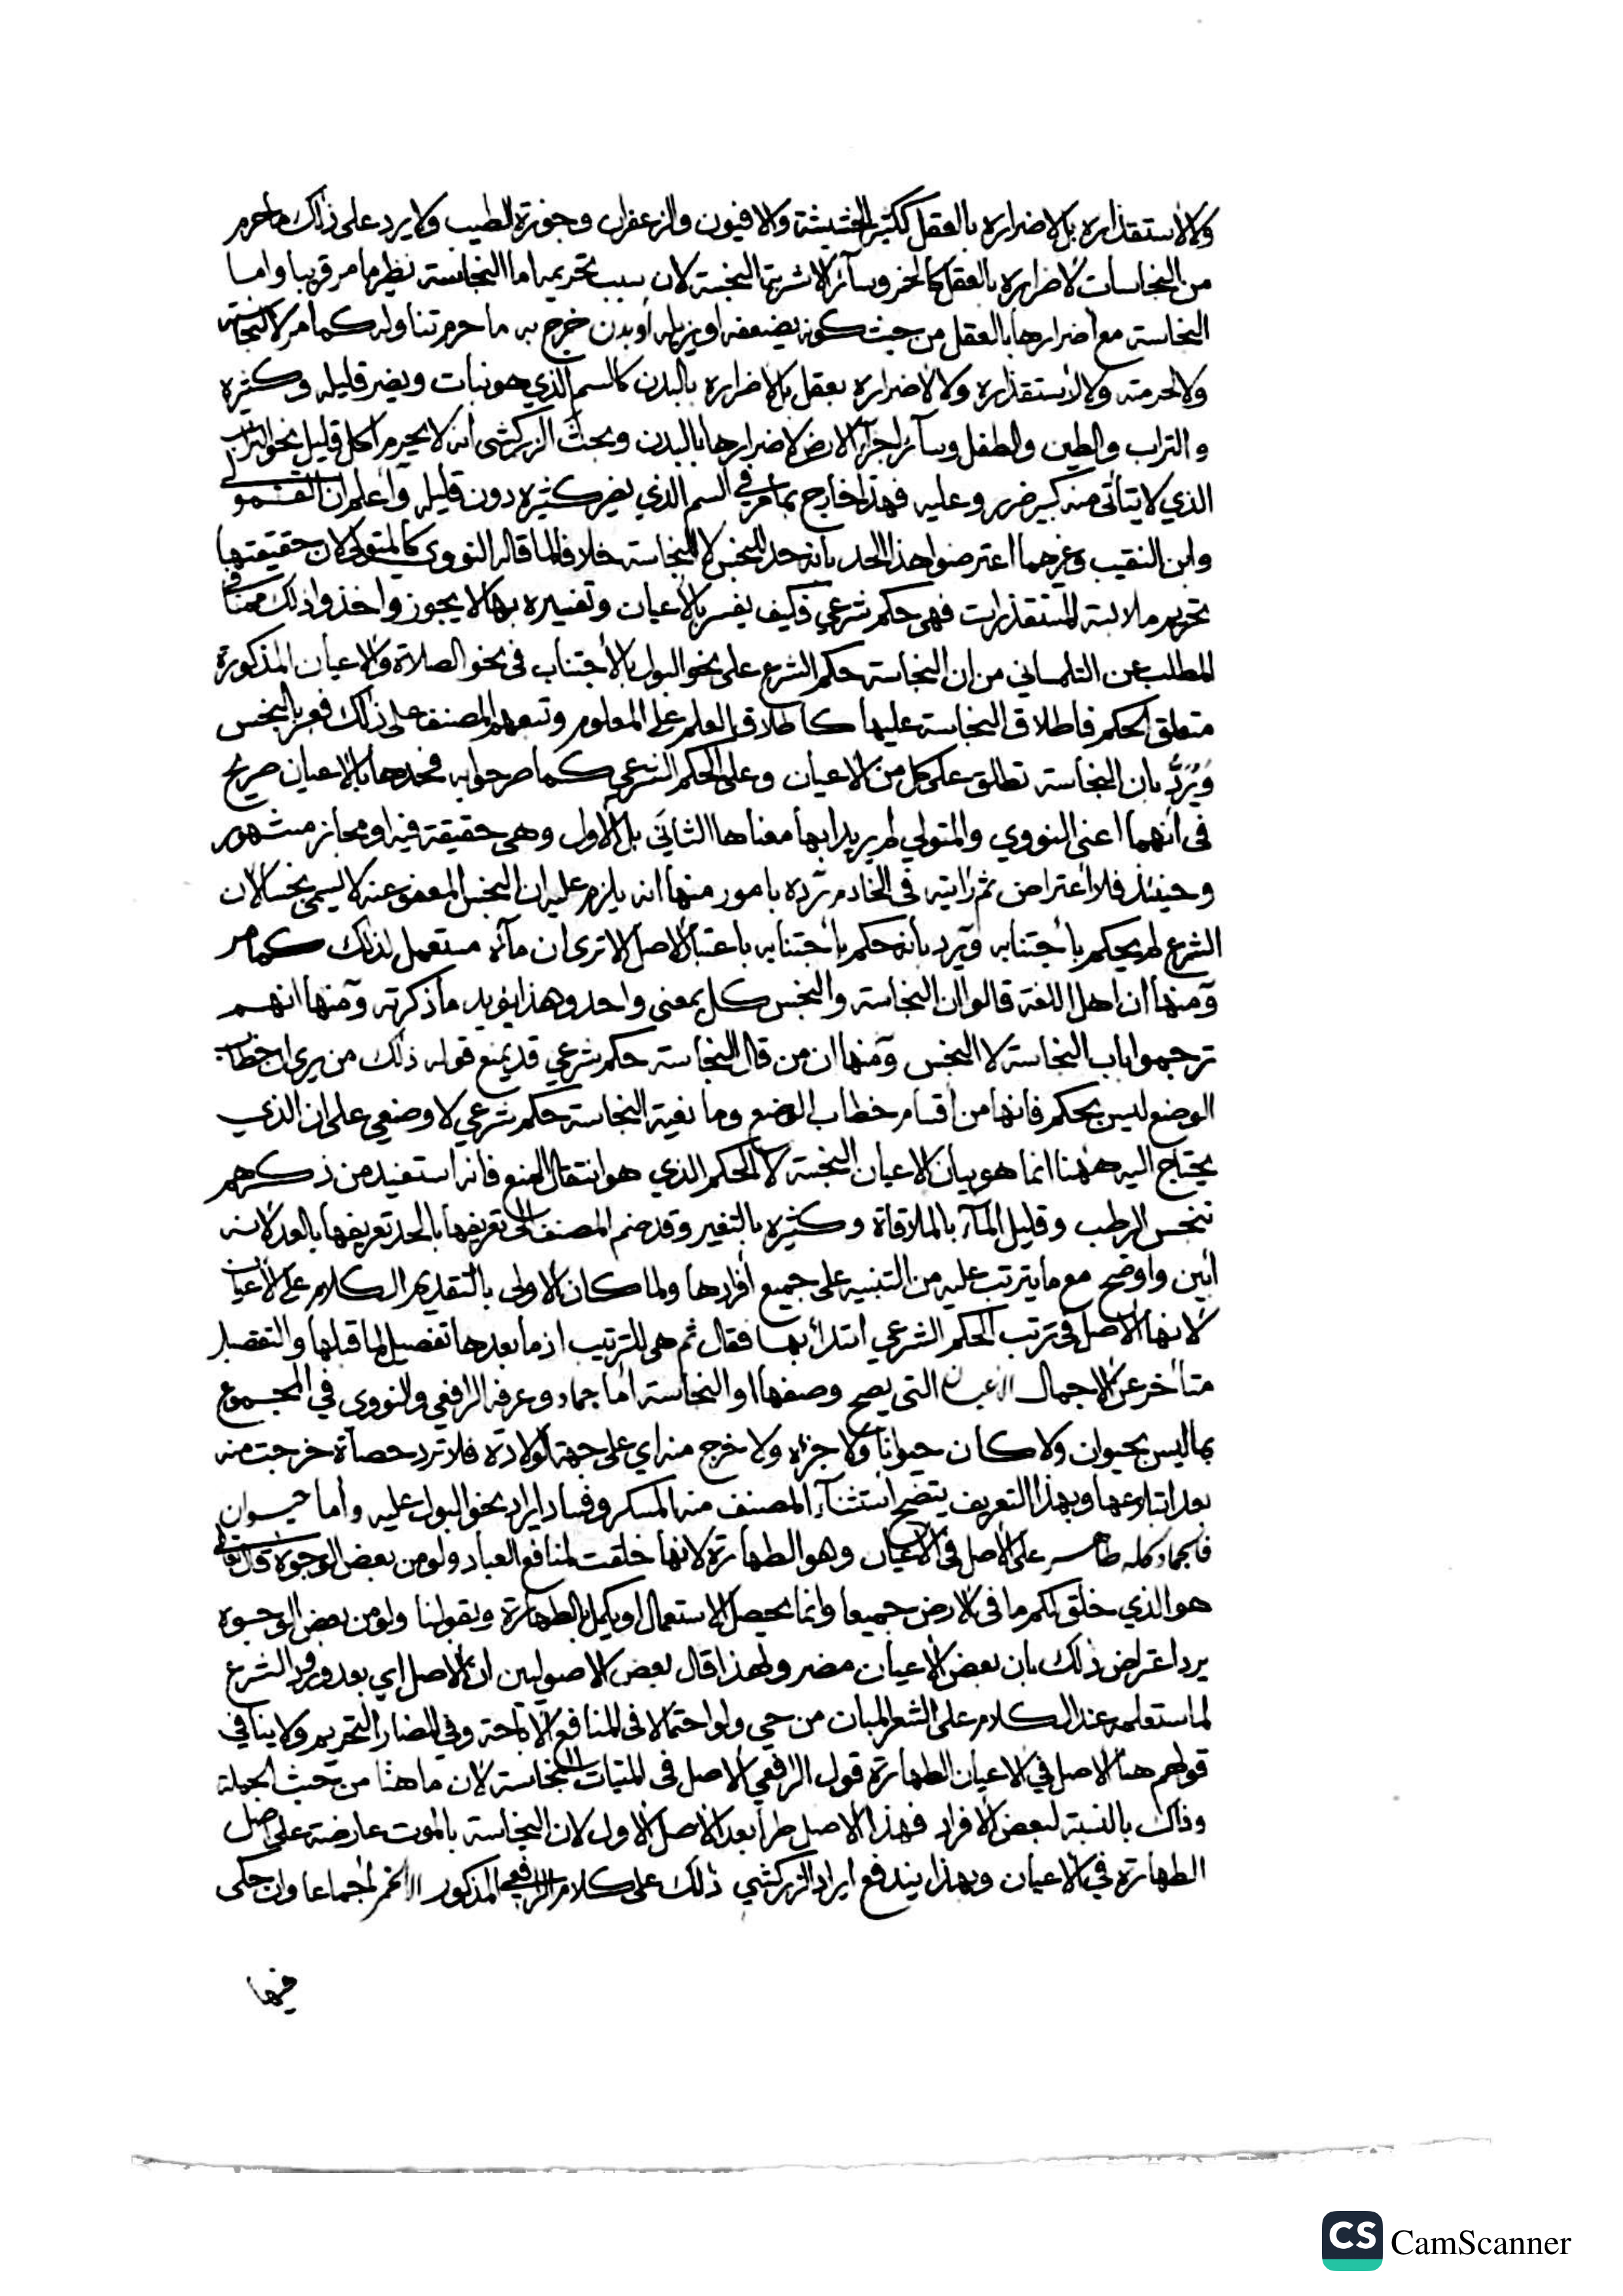 ولا لاستقذاره بل لاضراره بالعقل ككثير الحشيشة والافيون والزعفران وجوزة الطيب ولا يرد على ذلك ما حرم
من النجاسات لاضراره بالعقل كالخمر وسائر الاشربة النجسة لان سبب تحريمه اما النجاسة نظير ما مر قريبا واما
النجاسة مع اضرارها بالعقل من حيث كونه يضعفه او يزيله أو بدن خرج به ما حرم تناوله كما مر لا لنجاسته
ولا لحرمته ولا لاستقذاره ولا لاضراره بعقل بل لاضراره بالبدن كالسم الذي هو نبات ويضر قليله وكثيره
والتراب والطين والطفل وسائر اجزاء الارض لاضرارها بالبدن وبحث الزركشي انه لا يحرم اكل قليل نحو التراب
الذي لا يتأتى منه كبير ضرر وعليه فهذا خارج بما مر في السم الذي يضر كثيره دون قليله وأعلم ان القمولي
وابن النقيب وغيرهما اعترضوا هذا الحد بأنه حد للنجس لا للنجاسة خلافا لما قاله النووي كالمتولي لان حقيقتها
تحريم ملابسة المستقذرات فهي حكم شرعي فكيف يفسر بالأعيان وتفسيره بها لا يجوز واخذوا ذلك مما في
المطلب عن التلمساني من ان النجاسة حكم الشرع على نحو البول بالأجتناب في نحو الصلاة والاعيان المذكورة
متعلق الحكم فاطلاق النجاسة عليها كاطلاق العلم على المعلوم وتبعهم المصنف على ذلك فعبر بالنجس
ويرد بان النجاسة تطلق على كل من الاعيان وعلى الحكم الشرعي كما صرحوا به فحدها بالاعيان صريح
في أنهما اعني النووي والمتولي لم يريدا بها معناها الثاني بل الاول وهي حقيقة فيه او مجاز مشهور
وحينئذ فلا اعتراض ثم رايته في الخادم رده بامور منها انه يلزم عليه ان النجس المعفو عنه لا يسمى نجسا لان
الشرع لم يحكم باجتنابه ويرد بأنه حكم باجتنابه باعتبار الاصل الا ترى ان ماءه مستعمل لذلك كما مر
ومنها ان اهل اللغة قالوا ان النجاسة والنجس كل بمعنى واحد وهذا يؤيد ما ذكرته ومنها انهم
ترجموا باب النجاسة لا النجس ومنها ان من قال النجاسة حكم شرعي قد يمنع قوله ذلك من يرى ان خطاب
الوضع ليس بحكم فانها من اقسام خطاب الوضع النجاسة حكم شرعي لا وضعي على ان الذي
يحتاج اليه ههنا انما هو بيان الاعيان النجسة لا الحكم الذي هو فانه استفيد من ذكرهم
تنجس الرطب وقليل الماء بالملاقاة وكثيره بالتغير وقد ضم المصنف الى تعريفها بالحد تعريفها بالعد لانه
أبين واوضح مع ما يترتب عليه من التنبيه على جميع أفرادها ولما كان الاولى بالتقديم الكلام على الأعيان
لانها الاصل في ترتب الحكم الشرعي ابتدأ بها فقال ثم هي للترتيب اذ ما بعدها تفصيل لما قبلها والتفصيل
متأخر عن الاجمال الاعيان التي يصح وصفها او النجاسة اما جماد وعرفه الرافعي والنووي في المجموع
بما ليس بحيوان ولا كان حيوانا ولا جزؤه ولا خرج منه اي على جهة الولادة فلا ترد حصاة خرجت منه
بعد ابتلاعها وبهذا التعريف يتضح استثناء المصنف منه المسكر وفساد ايراد نحو البول عليه وأما حيوان
فالجماد كله طاهر على الاصل في الاعيان وهو الطهارة لانها خلقت لمنافع العباد ولو من بعض الوجوه قال تعالى
هو الذي خلق لكم ما في الارض جميعا وانما يحصل الاستعمال او يكمل بالطهارة وبقولنا ولو من بعض الوجوه
يرد اعتراض ذلك بان بعض الأعيان مضر ولهذا قال بعض الاصوليين ان الاصل اي بعد ورود الشرع
لما ستعلمه عند الكلام على الشعر المبان من حي ولو احتمالا في المنافع الاباحة وفي المضار التحريم ولا ينافي
قولهم هنا الاصل في الاعيان الطهارة قول الرافعي الاصل في الميتات النجاسة لان ما هنا من حيث الجملة
وذاك بالنسبة لبعض الافراد فهذا الاصل طرأ بعد الاصل الاول لان النجاسة بالموت عارضة على اصل
الطهارة في الاعيان وبهذا يندفع ايراد الزركشي ذلك على كلام الرافعي المذكور الا الخمر اجماعا وان حكى
فيها
CS CamScanner